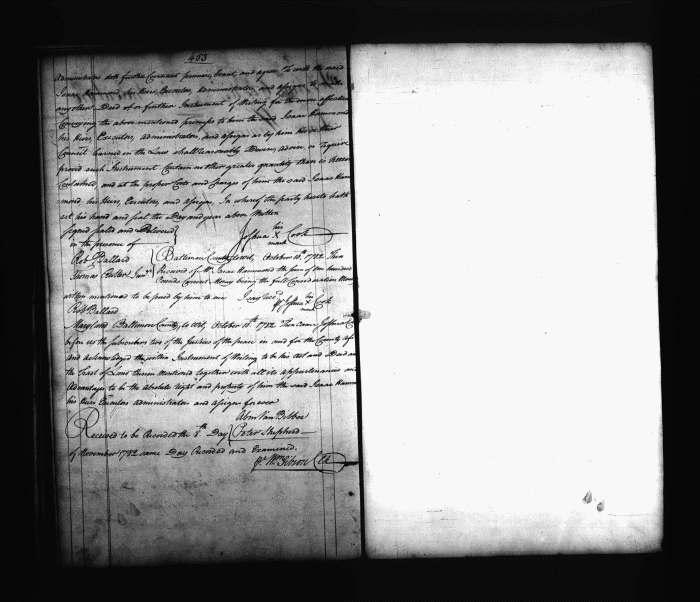 463
Administrators doth further Covenant promise Grant and agree to with the said
Isaac Hammond his Heirs, Executors, Administrators, and assigns to
any other Deed of or further Instrument of Writing for the more effectual
Conveying the above mentioned premises to him the said Isaac Hammond
his Heirs, Executors, Administrators, and assigns as by him his or their
Council learned in the Law shall reasonably Devise, advise, or require
provid such Instrument Contain no other or greater quantity than is herein
Contained and at the proper Costs and Charges of him the said Isaac Ham
mond, his Heirs, Executors, and assigns. In whereof the party hereto hath
set his hand and seal the Day and year above Written
Signed Sealed and Delivered
in the presence of
Joshua his X mark Cook
Robt Ballard
Baltimore County, to wit, October 10th, 1782. Then
Thomas Junr
Received of Mr Isaac Hammond the sum of one hundred
Pounds Current Money being the full Consideration Money
within mentioned to be paid by him to me
Joshua his X mark Cook
Robt Ballard
Maryland Baltimore County, to wit, October 10th, 1782. Then Came Joshua
before us the subscribers two of the Justices of the peace in and for the County
and acknowledged the within Instrument of Writing to be his act and Deed and
the Tract of Land therein Mentioned together with all its appurtenances and
Advantages to be the absolute right and property of him the said Isaac Hammond
his Heirs Executors Administrators and assigns for ever
Abm Van Bibber
Received to be Recorded the 8th Day
Peter Shepherd
of November 1782 same Day Recorded and Examined.
Wm Gibson Clk